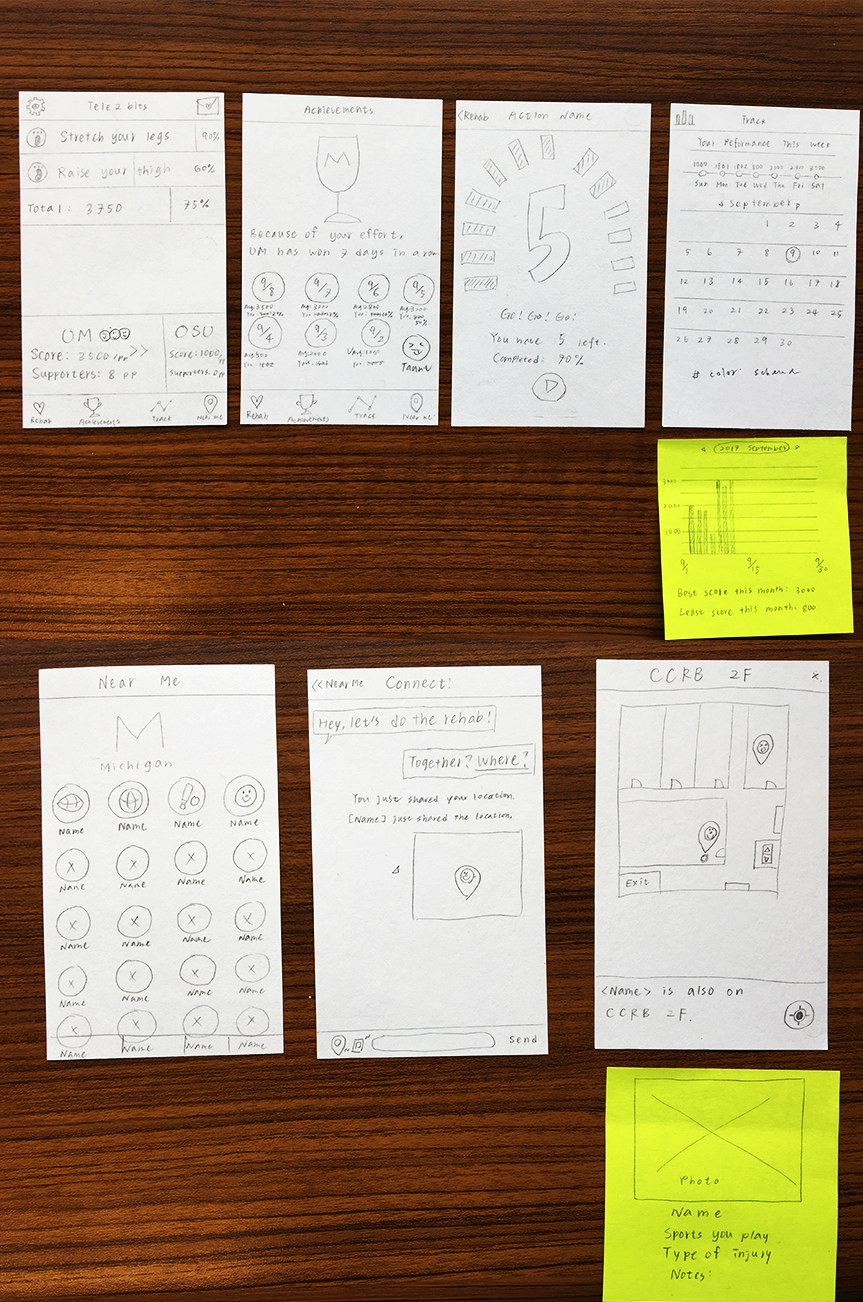 Tele 2 bits
Stretch your legs 90%
Raise your thigh 60%
Total: 3750 75%
UM
Score: 3500/pp >>
Supporters: 8 pp
OSU
score: 1000/pp
supporters: 0pp
Rehab Achievements Track Near me
Achievements
M
Because of your effort,
UM has won 7 days in a row.
9/8 9/7 9/6 9/5
Avg: 3500 Avg: 3000 Avg: 2800 Avg: 3000
9/4 9/3 9/2
Taunt
Rehab Achievements Track Near me
<Rehab Action Name
5
Go! Go! Go!
You have 5 left.
Completed: 70%
Track
Your Peformance This week
Sun Mon Tue Wed Thu Fri Sat
September
1 2 3 4
5 6 7 8 9 10 11
12 13 14 15 16 17 18
19 20 21 22 23 24 25
26 27 28 29 30
# color schema
< 2017 September >
3000
2000
1000
9/1 9/15 9/30
Best score this month: 3000
Least score this month: 800
Near Me
M
Michigan
Name Name Name Name
x x x x
Name Name Name Name
x x x x
Name Name Name Name
x x x x
Name Name Name Name
x x x x
Name Name Name Name
<<Near Me Connect!
Hey, let's do the rehab!
Together? Where?
You just shared your location.
[Name] just shared the location.
Send
CCRB 2F x
Exit
<Name> is also on
CCRB 2F.
Photo
Name
Sports you play
Type of injury
Notes: